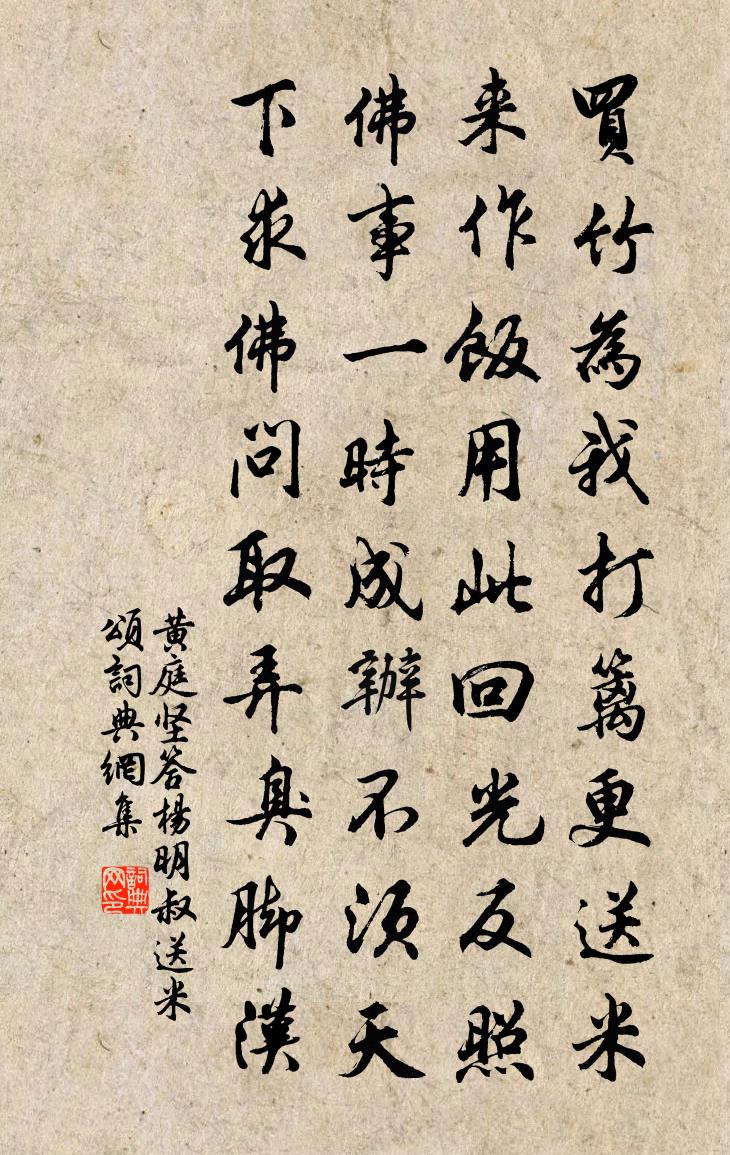 買竹為我打籬更送米
来作飯用此回光反照
佛事一時成辦不須天
下求佛問取弄臭脚漢
黄庭坚答楊明叔送米
頌詞典網集
詞典網印